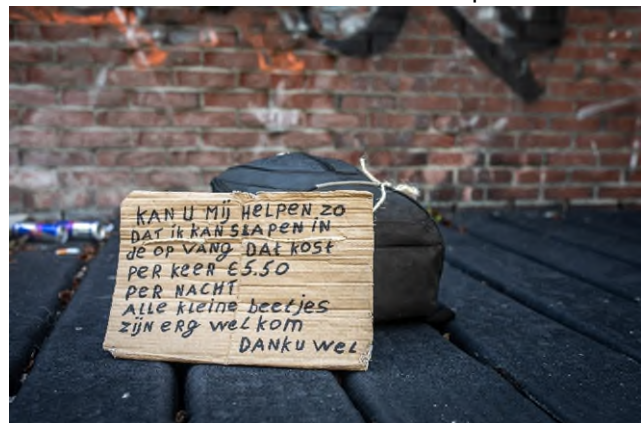 KAN U Mij HELPEN ZO
DAT ik KAN SLAPEN IN
de OP VANG DAt kost
PER KEER €5.50
PER NACHT
ALLE kleine beetjes
zijN eRg welkom
DANku wel